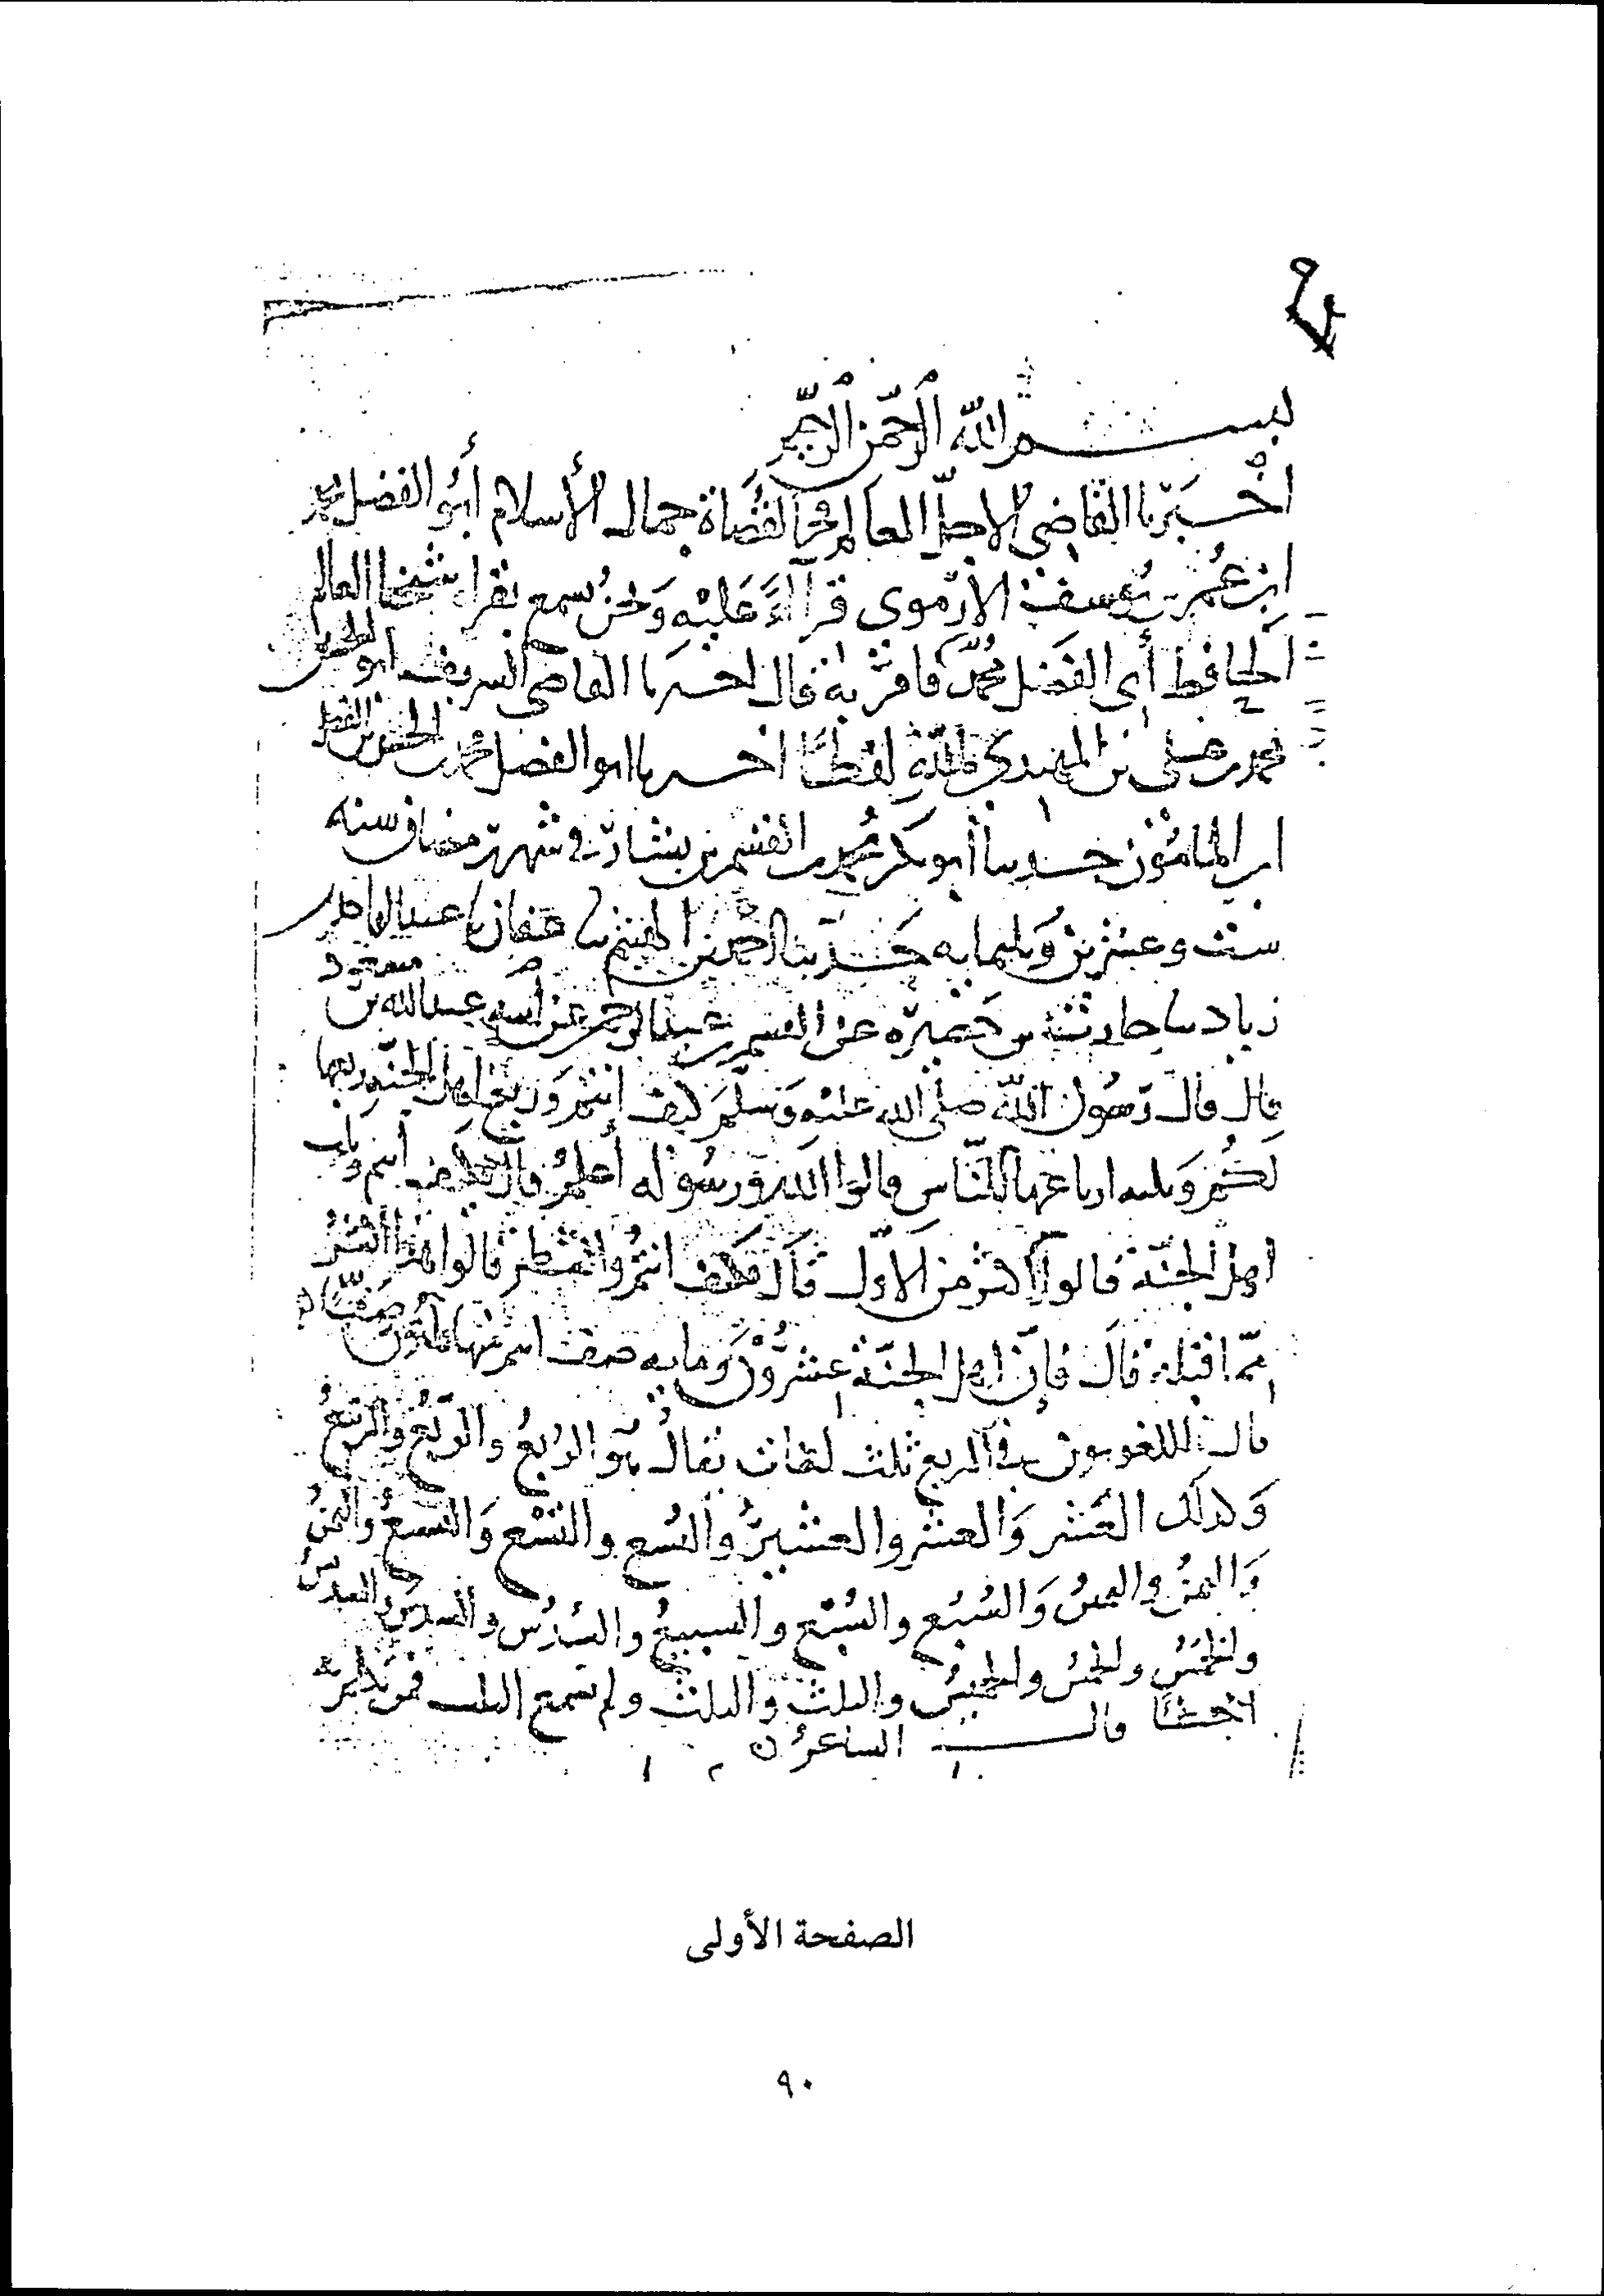 بسم الله الرحمن الرحيم
أخبرنا القاضي الاجل العالم فخر القضاة جمال الأسلام أبو الفضل محمد
ابن عمر بن يوسف الارموى قراآءة عليه ونحن نسمع بقراءة شيخنا العالم
الحافظ أبى الفضل محمد فاقر به قال اخبرنا القاضي الشريف ابو الحسين
محمد بن على بن المهتدى بالله لفظا اخبرنا ابو الفضل محمد بن الحسن بن الفضل
ابن المامون حدثنا أبو بكر محمد بن القسم بن بشار في شهر رمضان سنه
ست وعشرين وثلثمايه حدثنا احمد بن الهيثم ثنا عفان ثنا عبد الواحد بن
زياد ثنا حارثة بن حصيرة عن القسم بن عبد الرحمن عن أبيه عن عبد الله بن مسعود
قال قال رسول الله صلى الله عليه وسلم كيف انتم وربع اهل الجنة ربعها
لكم وثلثه ارباعها للناس قالوا الله ورسوله أعلم قال فكيف أنتم وثلث
اهل الجنة قالوا أكثر من الاول قال فكيف انتم والشطر قالوا هذا أكثر
مما قبله قال فإن اهل الجنة عشرون ومايه صف امتي منها ثمانون صفا
قال اللغويون في الربع ثلث لغات يقال هو الربع والربع والربيع
وكذلك العشر والعشر والعشير والتسع والتسع والتسيع والثمن
والثمن والثمين والسبع والسبع والسبيع والسدس والسدس والسديس
والخمس والخمس والخميس والثلث والثلث ولم نسمع الثليث
قال الشاعر
الصفحة الأولى
٩٠